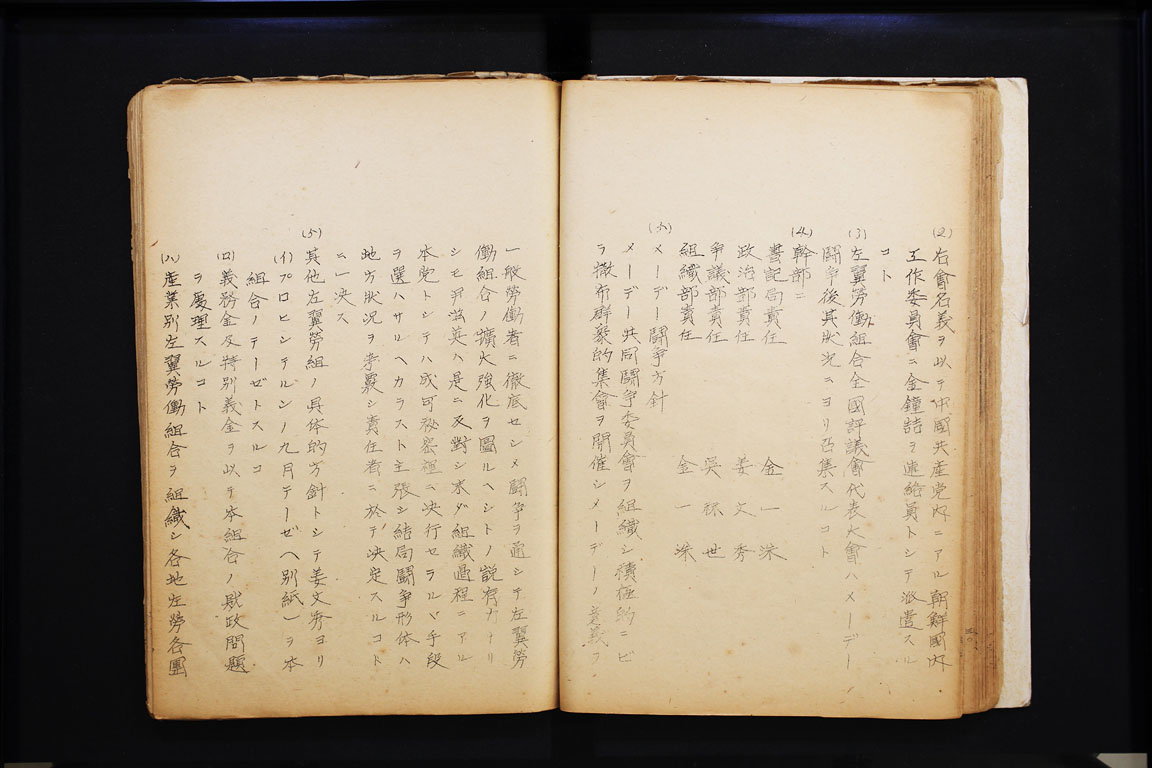 (2) 右會名義ヲ以テ中國共産党内ニアル朝鮮國内
工作委員會ニ金鐘喆ヲ連絡員トシテ派遣スル
コト
(3) 左翼勞働組合全國評議會代表大會ハメーデー
鬪争後其狀況ニヨリ召集スルコト
(4) 幹部ニ
書記局責任 金一洙
政治部責任 姜文秀
争議部責任 吳 世
組織部責任 金一洙
(5) メーデー鬪争方針
メーデー共同鬪争委員會ヲ組織シ積極的ニビ
ラ撒布群衆的集會ヲ開催シメーデーノ意義ヲ
一般勞働者ニ徹底セシメ鬪争ヲ通シテ左翼勞
働組合ノ擴大強化ヲ圖ルヘシトノ説有力ナリ
シモ尹 英ハ是ニ反對シ末ダ組織過程ニアル
本党トシテハ成可秘密裡ニ決行セラルベ手段
ヲ選ハサルヘカラスト主張シ結局鬪争形体ハ
地方狀況ヲ考覈シ責任者ニ於テ決定スルコト
ニ一決ス
(5) 其他左翼勞組ノ具体的方針トシテ姜文秀ヨリ
(イ) プロヒンテルンノ九月テーゼヘ別紙一ヲ本
組合ノテーゼトスルコ
(ロ) 義務金及特別義金ヲ以テ本組合ノ財政問題
ヲ處理スルコト
(ハ) 産業別左翼勞働組合ヲ組織シ各地左勞各團